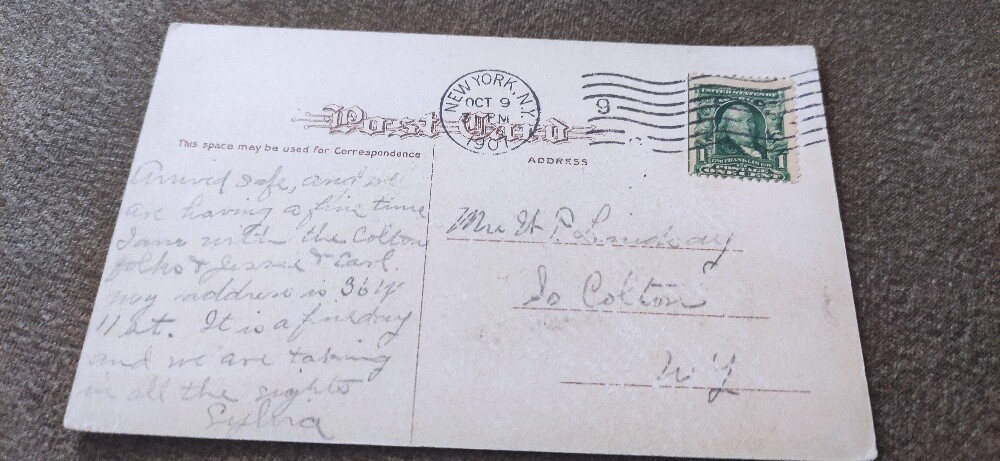 NEW YORK, N.Y.
OCT 9
PM
1907
9
UNITED STATES OF
1 FRANKLIN
POSTAGE
ONE CENT
Post Card
This space may be used for Correspondence
ADDRESS
Arrived safe, and we
are having a fine time
I am with the Colton
folks & Jessie & Carl.
my address is
11 st. It is a fine day
and we are taking
in all the sights
Sylvia
Mrs W P. Lindsay
So Colton
N Y